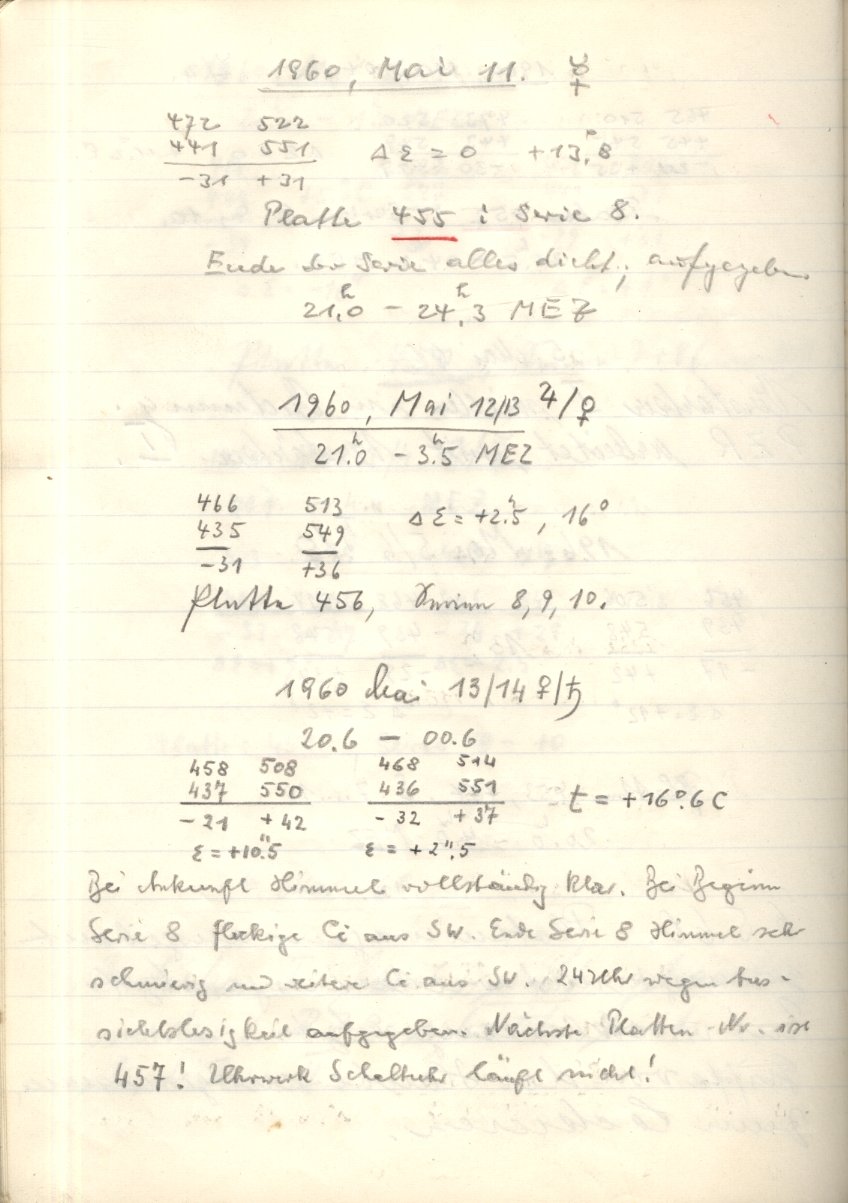 1960, Mai 11. ☿
472 522
441 551
-31 +31
Δ ε = 0 +13,8
Platte 455 i Serie 8.
Ende der Serie alles dicht, aufgegeben.
21ʰ.0 – 24ʰ.3 MEZ
1960, Mai 12/13 ♃/♀
21ʰ.0 – 3ʰ.5 MEZ
466 513
435 549
-31 +36
Δ ε = +2".5, 16°
Platte 456, Serien 8, 9, 10.
1960 Mai 13/14 ♀/♄
20.6 – 00.6
458 508 468 514
437 550 436 551
-21 +42 -32 +37
t = +16°.6 C
ε = +10".5 ε = +2".5
Bei Ankunft Himmel vollständig klar. Bei Beginn
Serie 8 fleckige Ci aus SW. Ende Serie 8 Himmel sehr
schmierig und weitere Ci aus SW. 24 Uhr wegen Aus-
sichtslosigkeit aufgegeben. Nächste Platten-Nr. ist
457! Uhrwerk Schaltuhr läuft nicht!